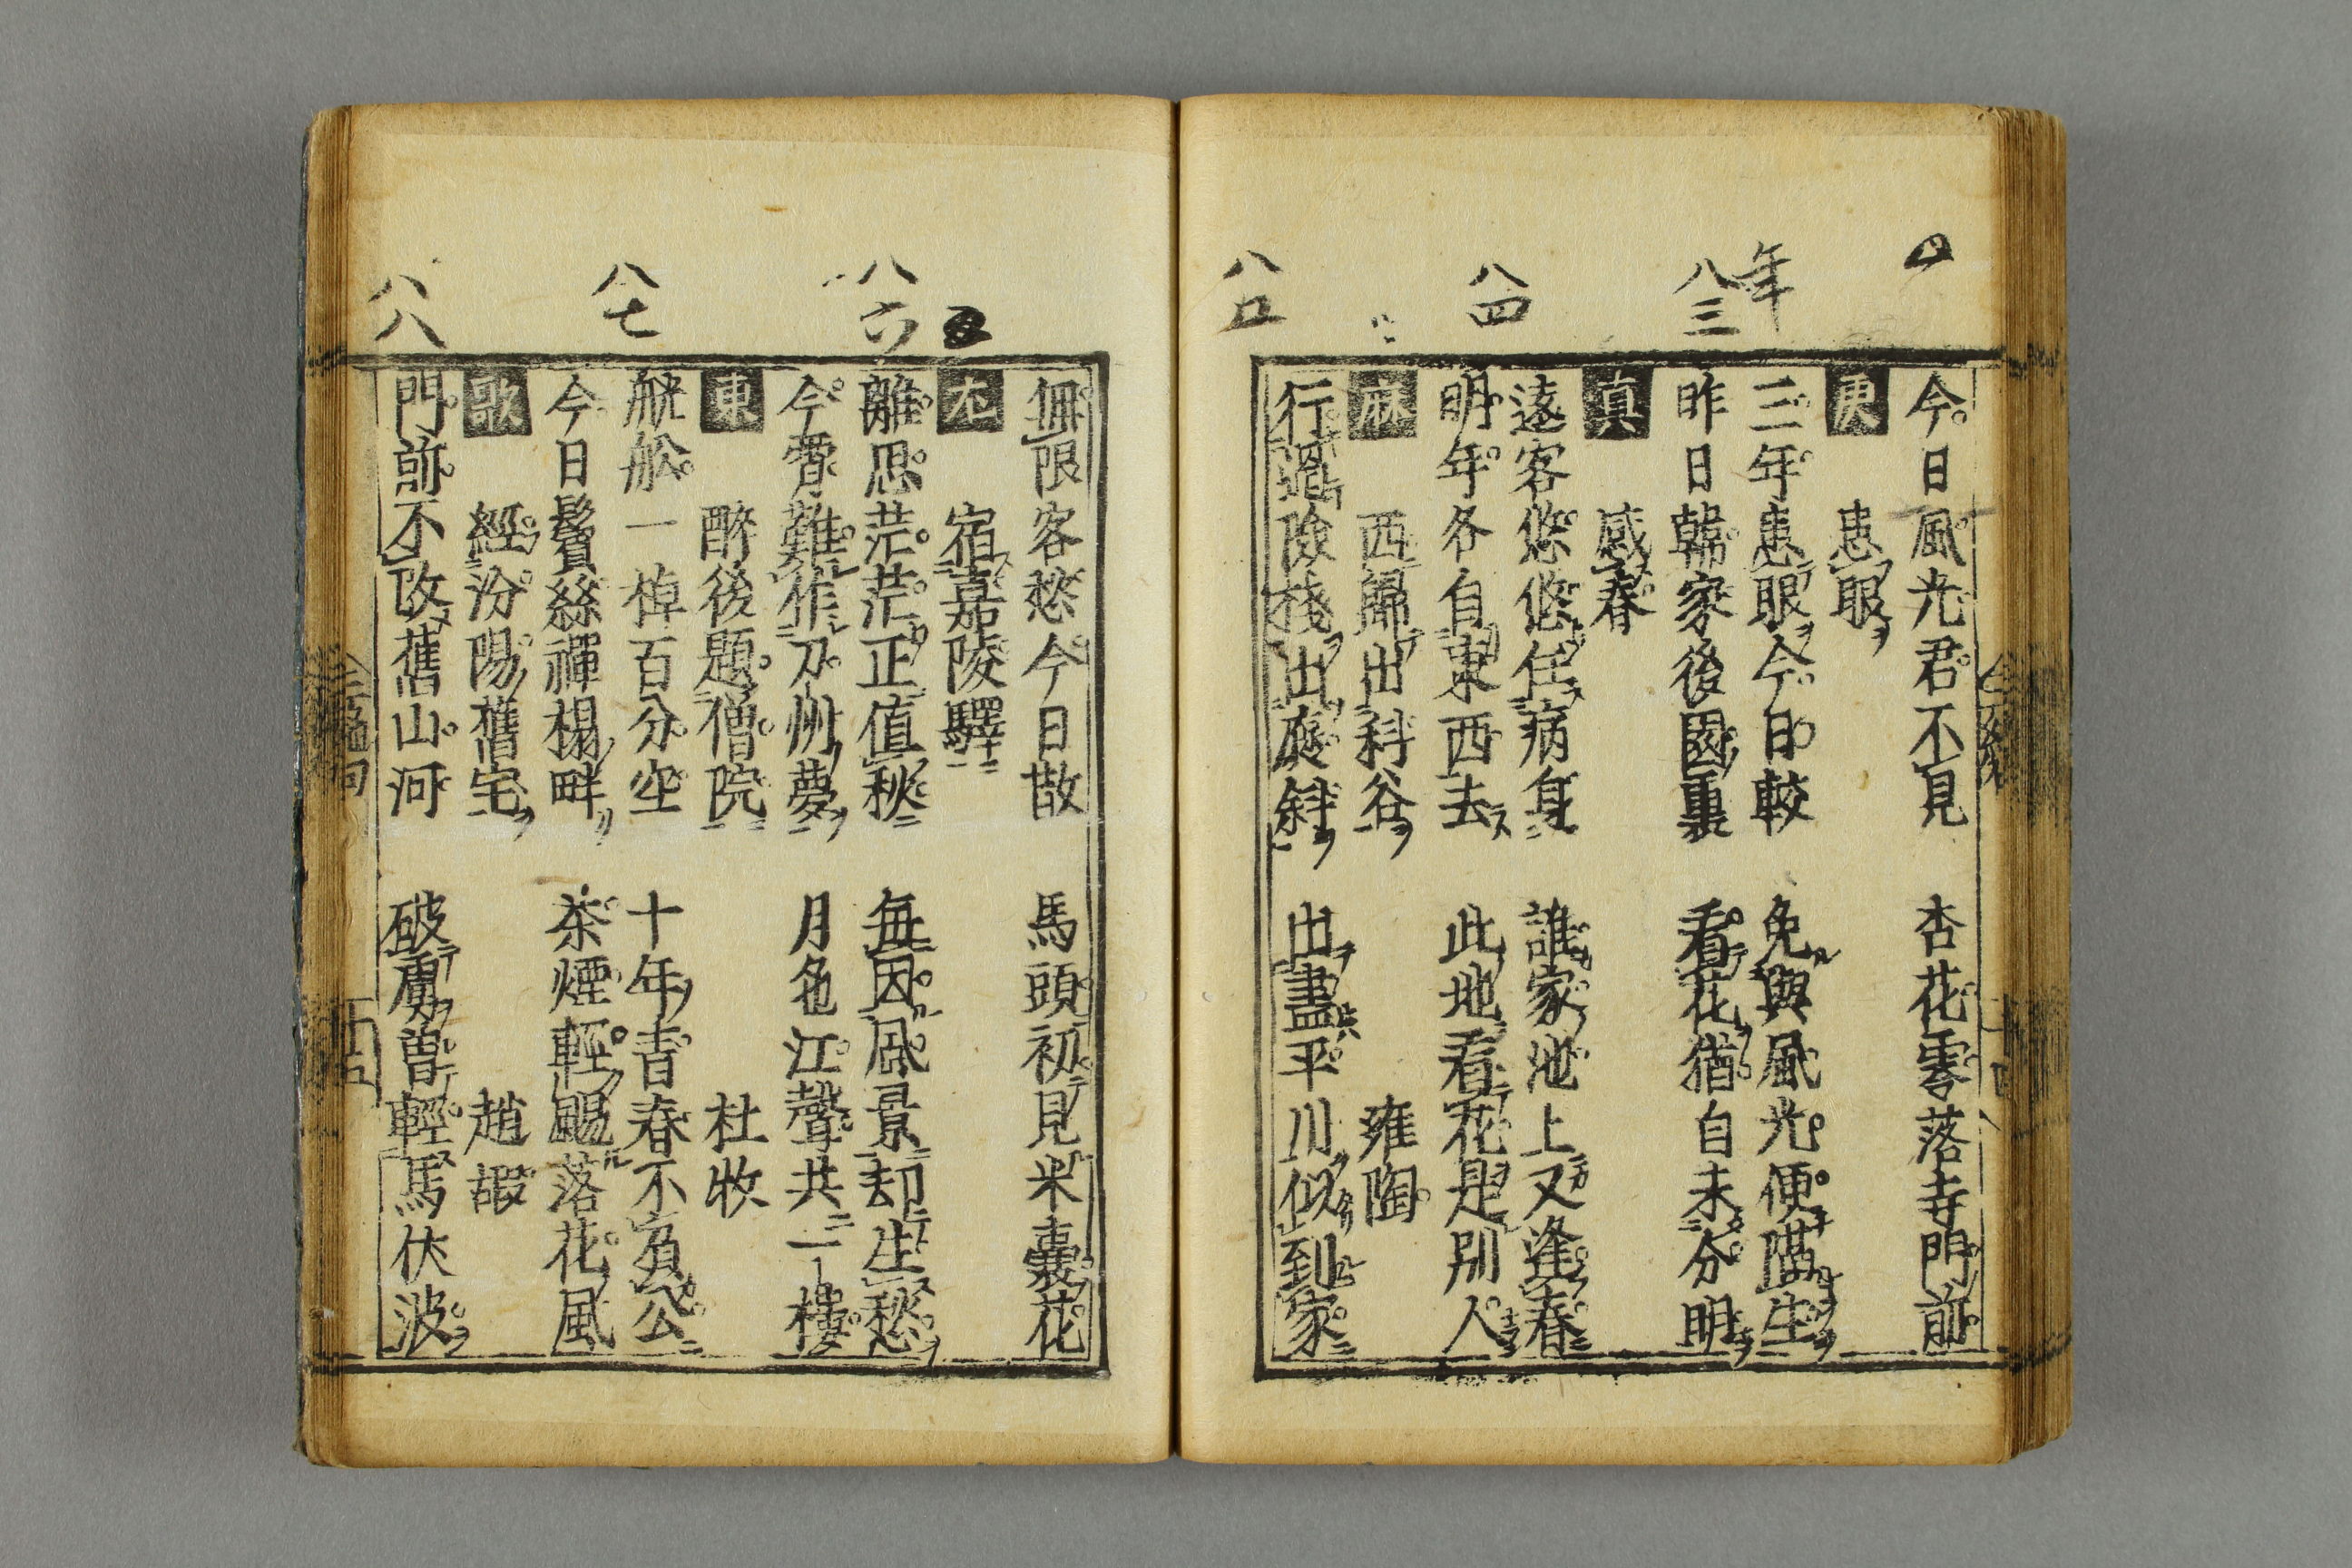 年
八三
八四
八五
今日風光君不見 杏花零落寺門前
庚 患眼
三年患眼今日較 免與風光便隔生
昨日韓家後園裏 看花猶自未分明
真 感春
遠客悠悠任病身 誰家池上又逢春
明年各自東西去 此地看花是別人
麻 西歸出斜谷 雍陶
行過險棧出褒斜 出盡平川似到家
八六
八七
八八
無限客愁今日散 馬頭初見米囊花
尤 宿嘉陵驛
離思茫茫正値秋 每因風景却生愁
今宵難作刀州夢 月色江聲共一樓
東 醉後題僧院 杜牧
觥舩一棹百分空 十年青春不負公
今日鬢絲禪榻畔 茶煙輕颺落花風
歌 經汾陽舊宅 趙嘏
門前不改舊山河 破虜曽輕馬伏波